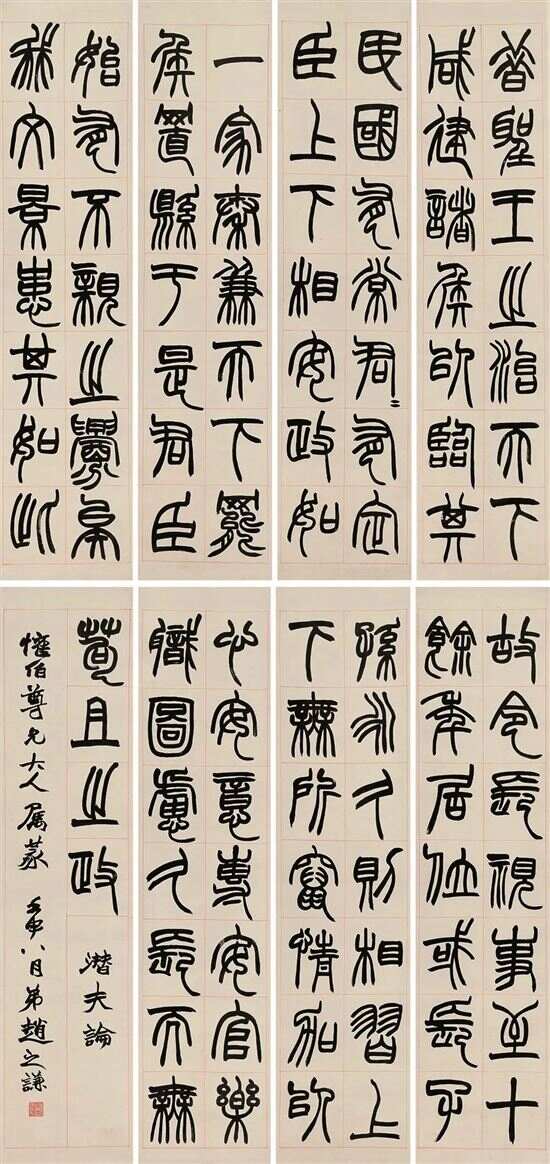 昔聖王之治天下
咸建諸侯以臨其
民國有常君〻有定
臣上下相安政如
一家秦兼天下罷
侯置縣于是君臣
始有不親之釁矣
我文景患其如此
故令長視事至十
餘年居位或長子
孫永久則相習上
下無所竄情加以
心安意專安官樂
職圖慮久長而無
苟且之政 潛夫論
懽伯尊兄大人屬篆 壬申八月弟趙之謙